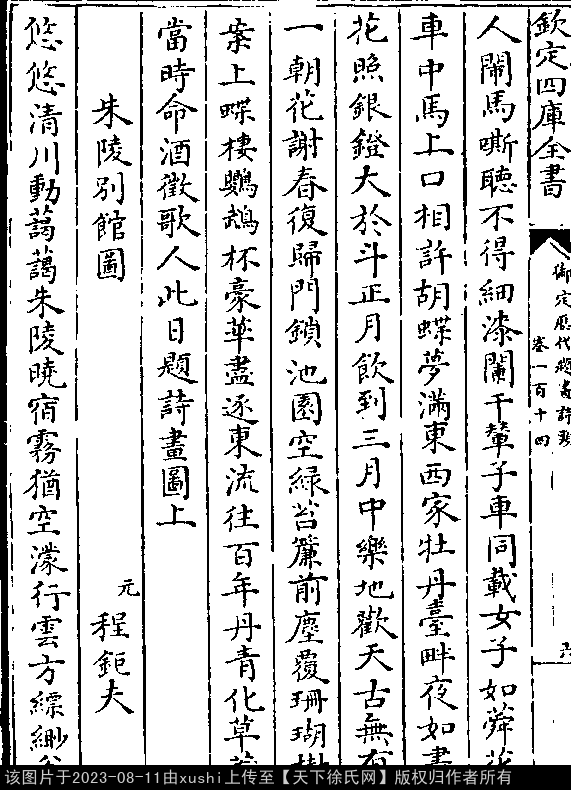 欽定四庫全書
御定歷代題畫詩類
卷一百十四
六
人閙馬嘶聽不得細漆闌干輦子車同載女子如蕣花
車中馬上口相許胡蝶夢滿東西家牡丹臺畔夜如晝
花照銀鐙大於斗正月飲到三月中樂地歡天古無有
一朝花謝春復歸門鎖池園空緑苔簾前塵覆珊瑚樹
案上蝶棲鸚鵡杯豪華盡逐東流往百年丹青化草莽
當時命酒徵歌人此日題詩畫圖上
朱陵別館圖
元 程鉅夫
悠悠清川動藹藹朱陵曉宿霧猶空濛行雲方縹緲
该图片于2023-08-11由xushi上传至【天下徐氏网】版权归作者所有